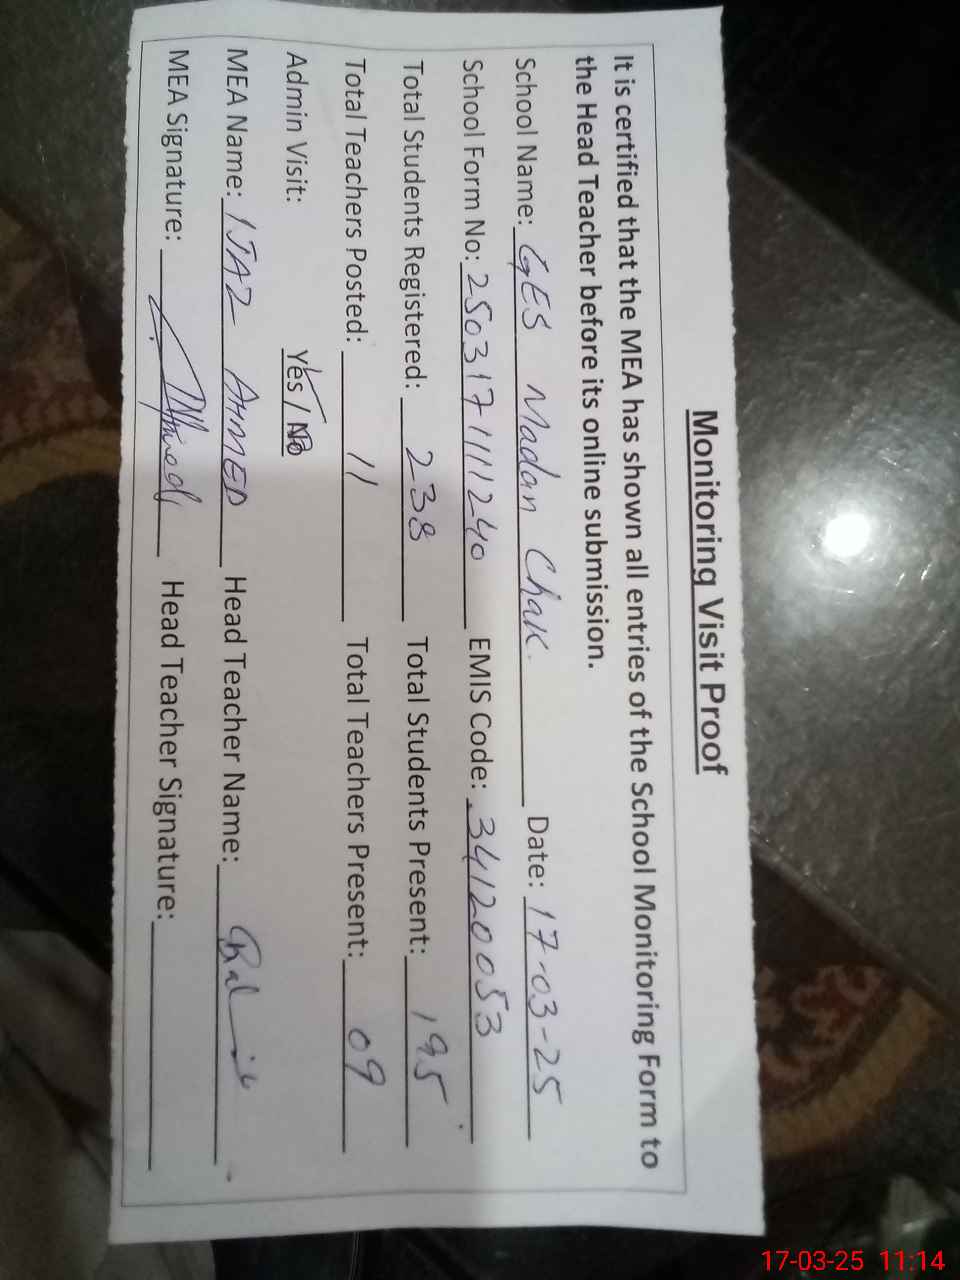 Monitoring Visit Proof
It is certified that the MEA has shown all entries of the School Monitoring Form to
the Head Teacher before its online submission.
School Name: GES Madan Chak. Date: 17-03-25
School Form No: 250317111240 EMIS Code: 34120053
Total Students Registered: 238 Total Students Present: 195
Total Teachers Posted: 11 Total Teachers Present: 09
Admin Visit: Yes / No
MEA Name: IJAZ AHMED Head Teacher Name:
MEA Signature: Ahmed Head Teacher Signature:
17-03-25 11:14